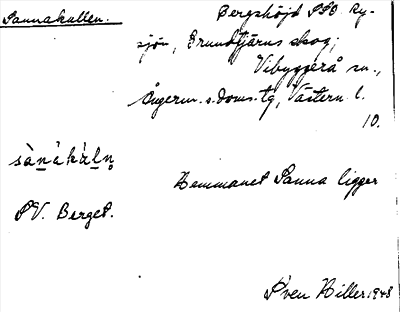 Sannakullen.
Bergshöjd SSO Ry-
sjön, Grundtjärns skog;
Vibyggerå sn.,
Ångerm. s. doms. tg, Västern. l.
10.
sànákàln̥
Hemmanet Sanna ligger
SV. Berget.
Sven Hiller 1948